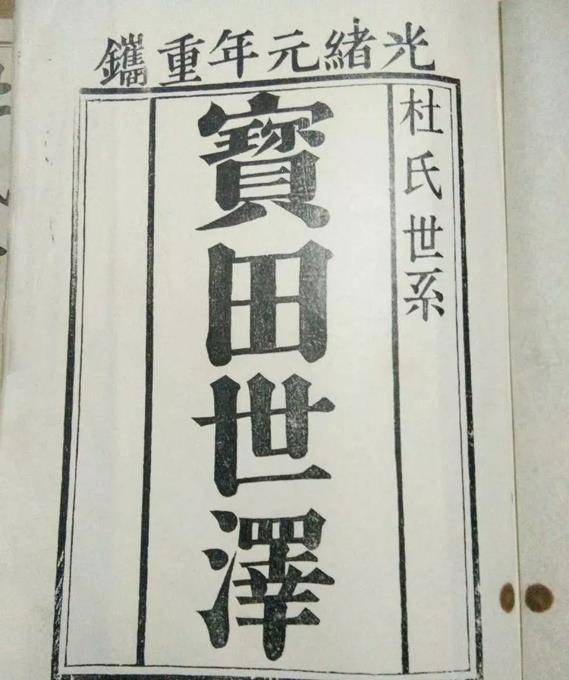 光緒元年重鐫
杜氏世系
寳田世澤